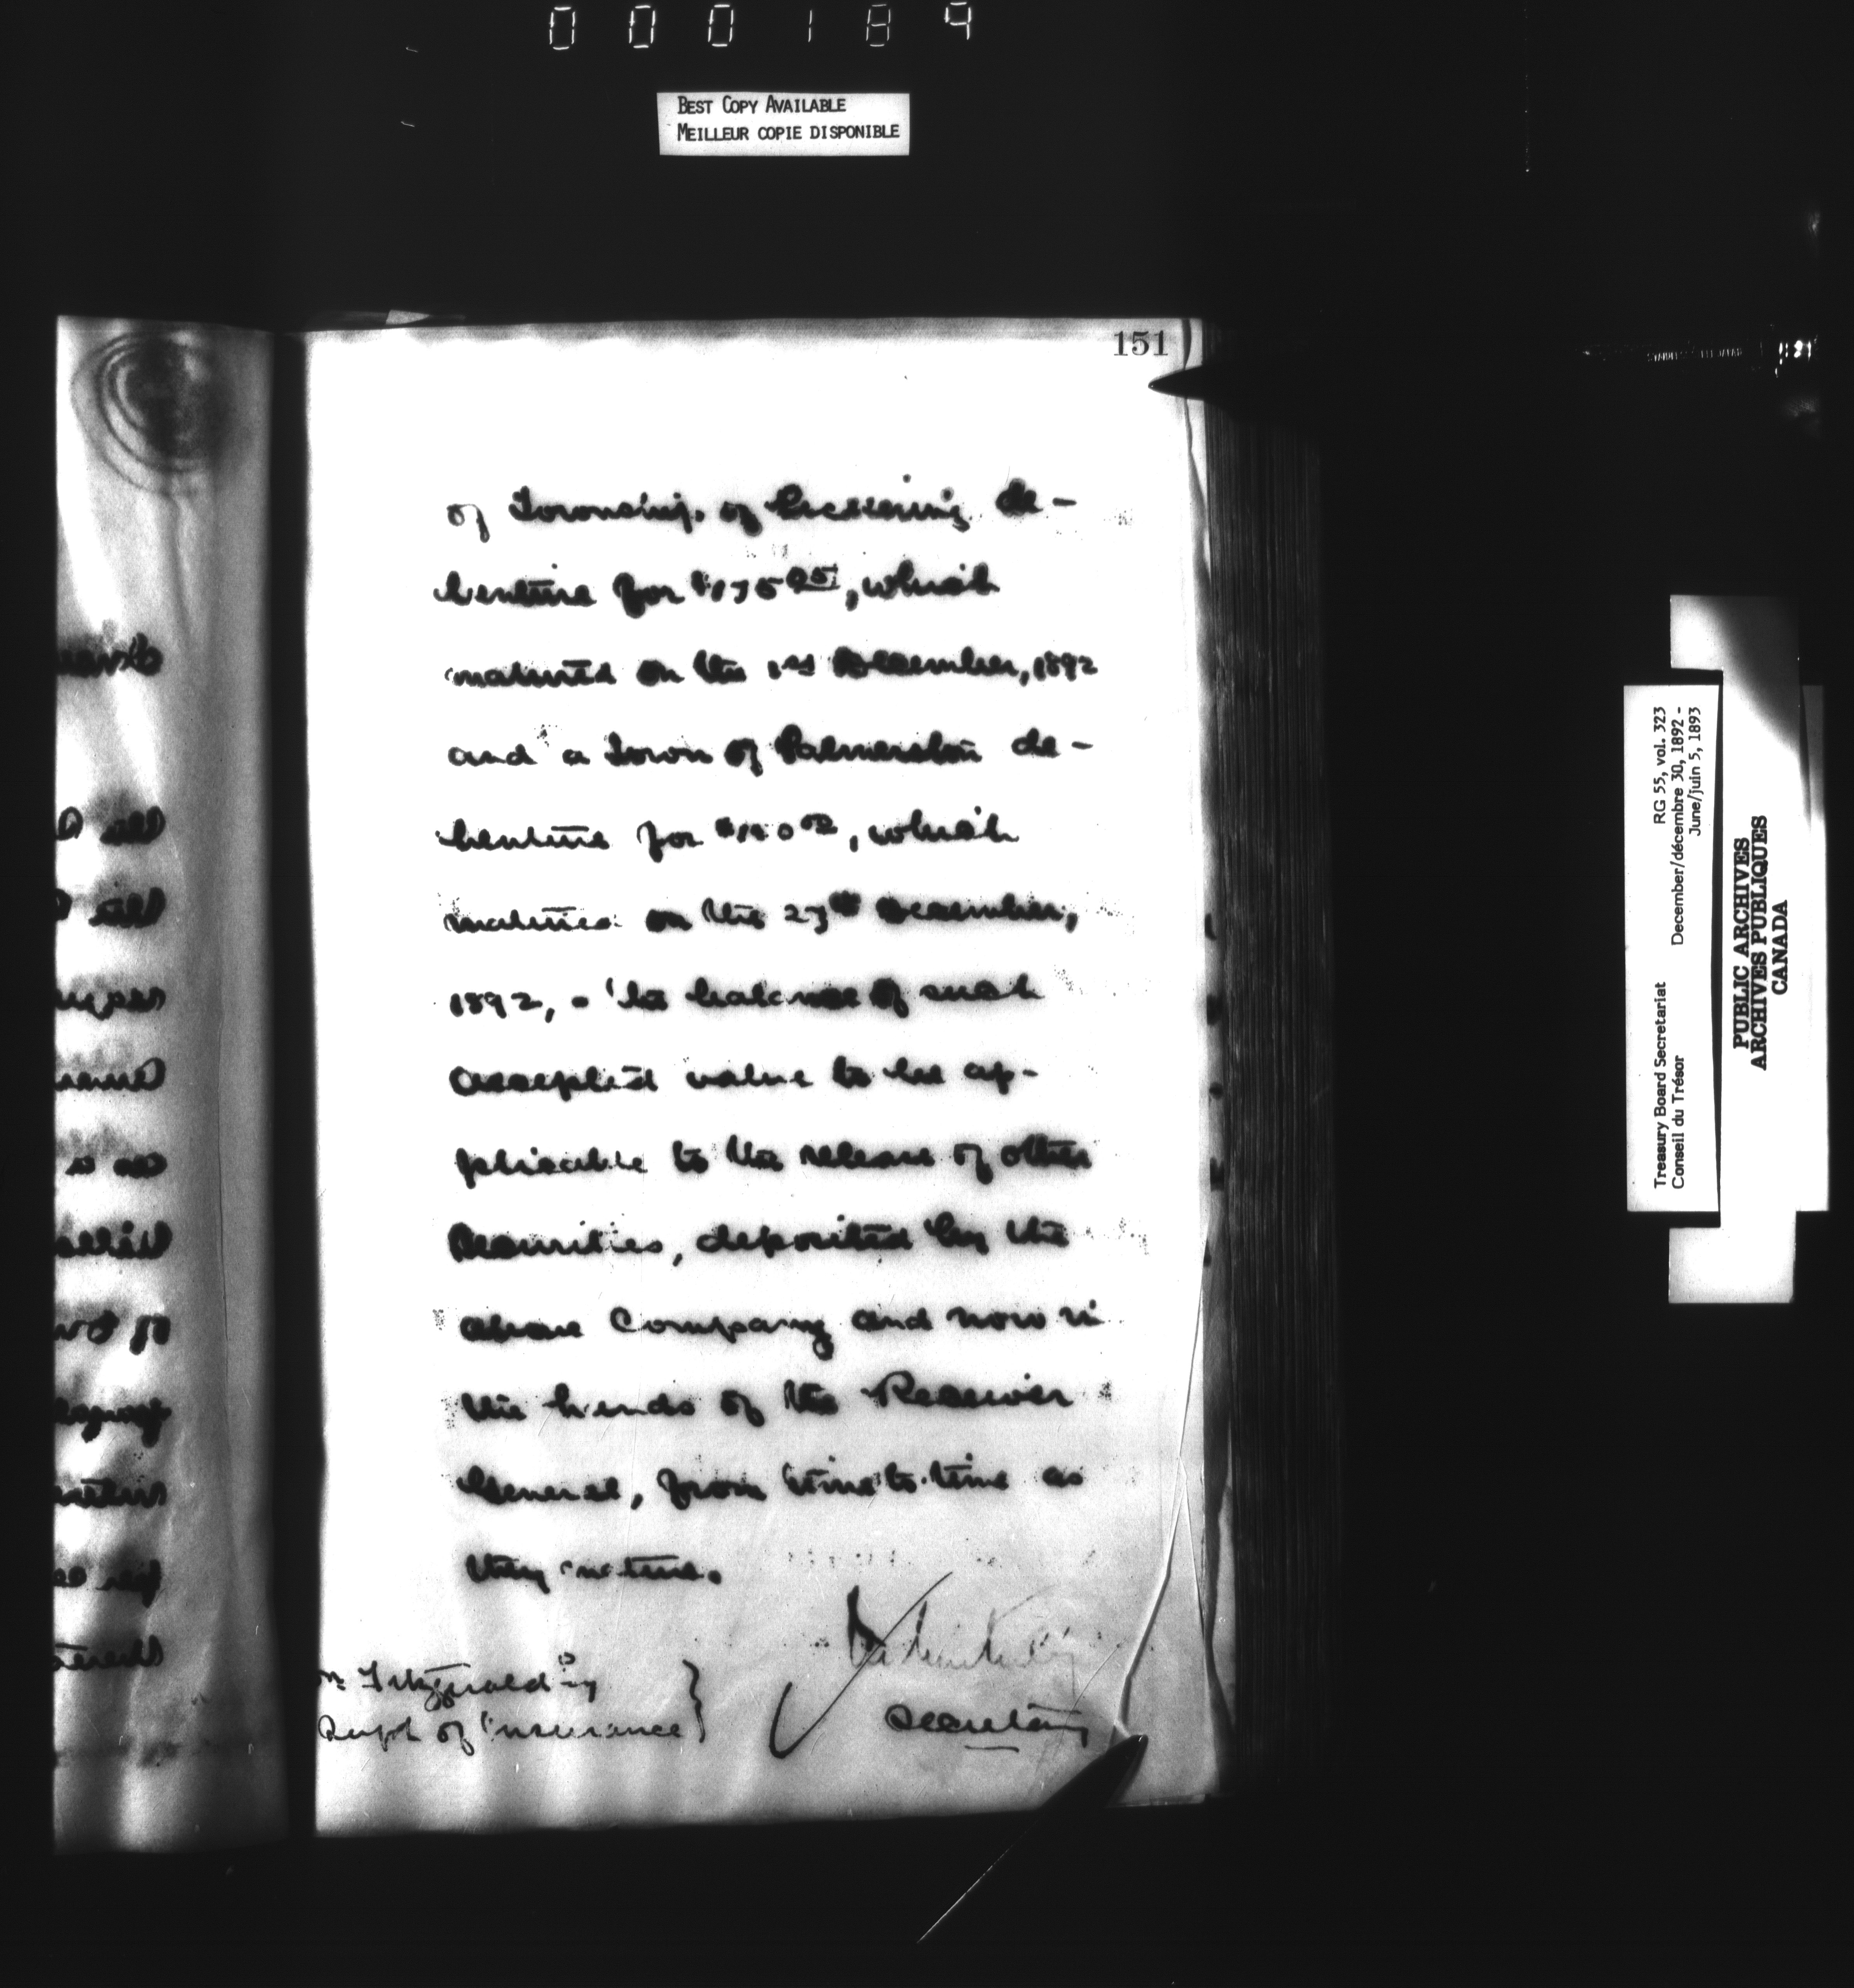 000189
BEST COPY AVAILABLE
MEILLEUR COPIE DISPONIBLE
151
of Township of de-
benture for $17505, which
matured on the 1st December, 1892
and a Town of Palmerston de-
benture for $10000, which
matures on the 27th December,
1892, - the balance of such
accepted value to be ap-
plicable to the release of other
Securities, deposited by the
above Company and now in
the hands of the Receiver
General, from time to time as
they mature.
Fitzgerald
Supt of Insurance
Secretary
Treasury Board Secretariat RG 55, vol. 323
Conseil du Trésor December/décembre 30, 1892 -
June/juin 5, 1893
PUBLIC ARCHIVES
ARCHIVES PUBLIQUES
CANADA